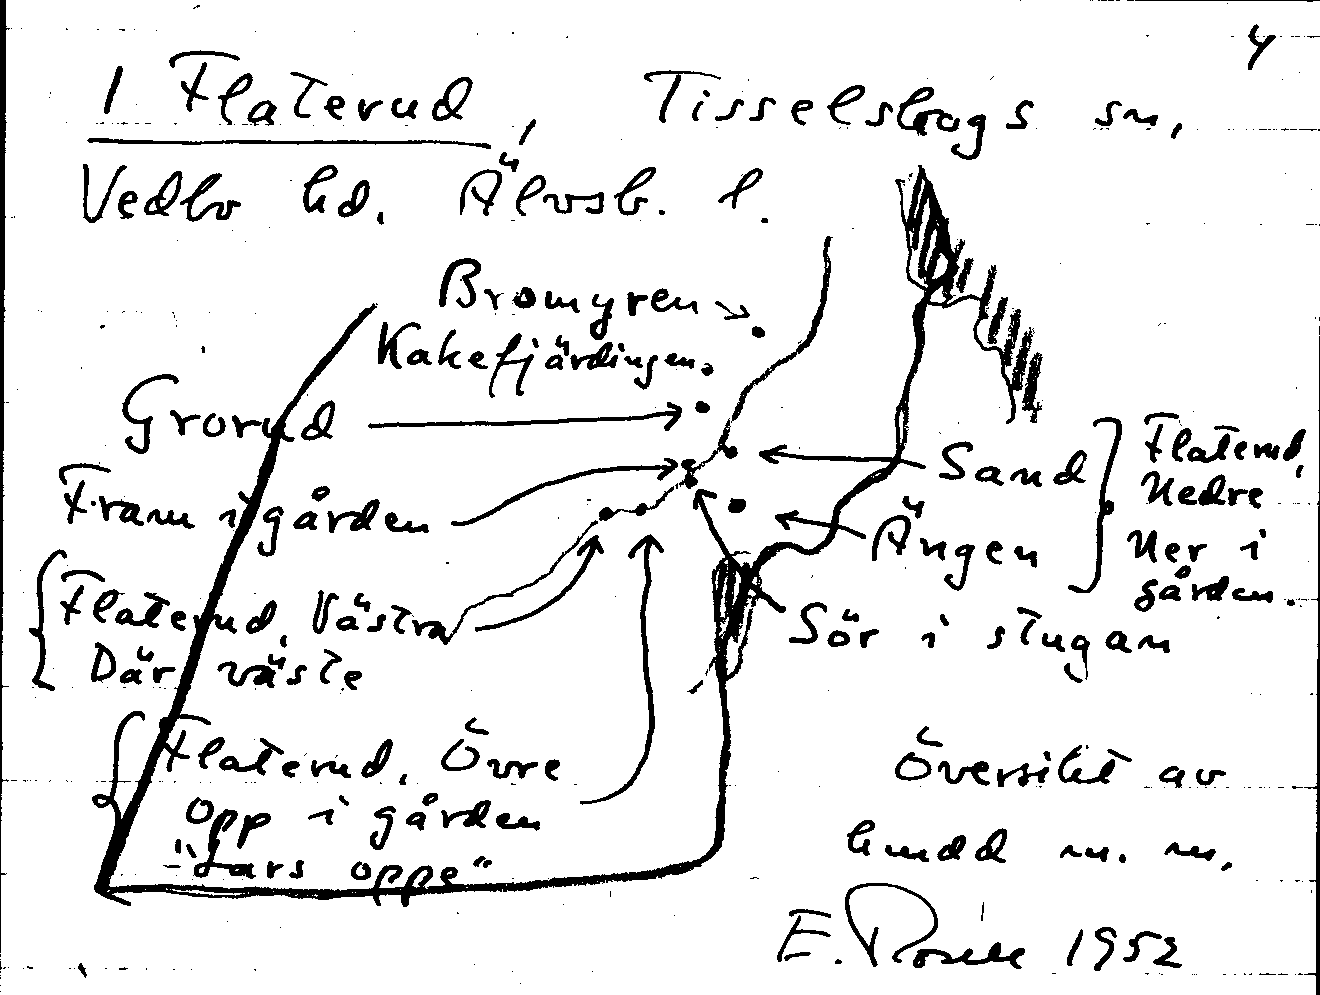 4
1 Flaterud, Tisselskogs sn,
Vedbo hd. Älvsb. l.
Bromyren
Kakefjärdingen.
Grorud
Fram i gården
Flaterud, Västra
Där väste
Flaterud, Övre
Opp i gården
"Lars oppe"
Sand
Ängen
Flaterud,
Nedre
Ner i
gården.
Sör i stugan
Översikt av
hmdd m. m.
E. Rosell 1952